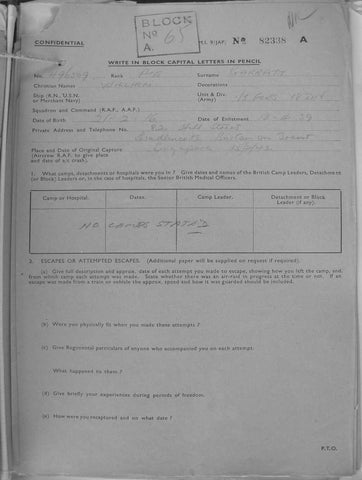 BLOCK
Nº 65
A.
CONFIDENTIAL
Nº 82338 A
WRITE IN BLOCK CAPITAL LETTERS IN PENCIL
No. Rank PTE Surname GARRATT
Christian Names WILLIAM Decorations
Ship (R.N., U.S.N. or Merchant Navy) Unit & Div. (Army) 18 DIV
Squadron and Command (R.A.F., A.A.F.)
Date of Birth Date of Enlistment 39
Private Address and Telephone No. 82 Hill Street
Burton on Trent
Place and Date of Original Capture
(Aircrew R.A.F. to give place
and date of a/c crash).
1. What camps, detachments or hospitals were you in? Give dates and names of the British Camp Leaders, Detachment
(or Block) Leaders or, in the case of hospitals, the Senior British Medical Officers.
Camp or Hospital. Dates. Camp Leader. Detachment or Block Leader (if any).
NO CAMPS STATED
2. ESCAPES OR ATTEMPTED ESCAPES. (Additional paper will be supplied on request if required).
(a) Give full description and approx. date of each attempt you made to escape, showing how you left the camp, and
from which camp each attempt was made. State whether there was an air-raid in progress at the time or not. If an
escape was made from a train or vehicle the approx. speed and how it was guarded should be included.
(b) Were you physically fit when you made these attempts?
(c) Give Regimental particulars of anyone who accompanied you on each attempt.
What happened to them?
(d) Give briefly your experiences during periods of freedom.
(e) How were you recaptured and on what date?
P.T.O.